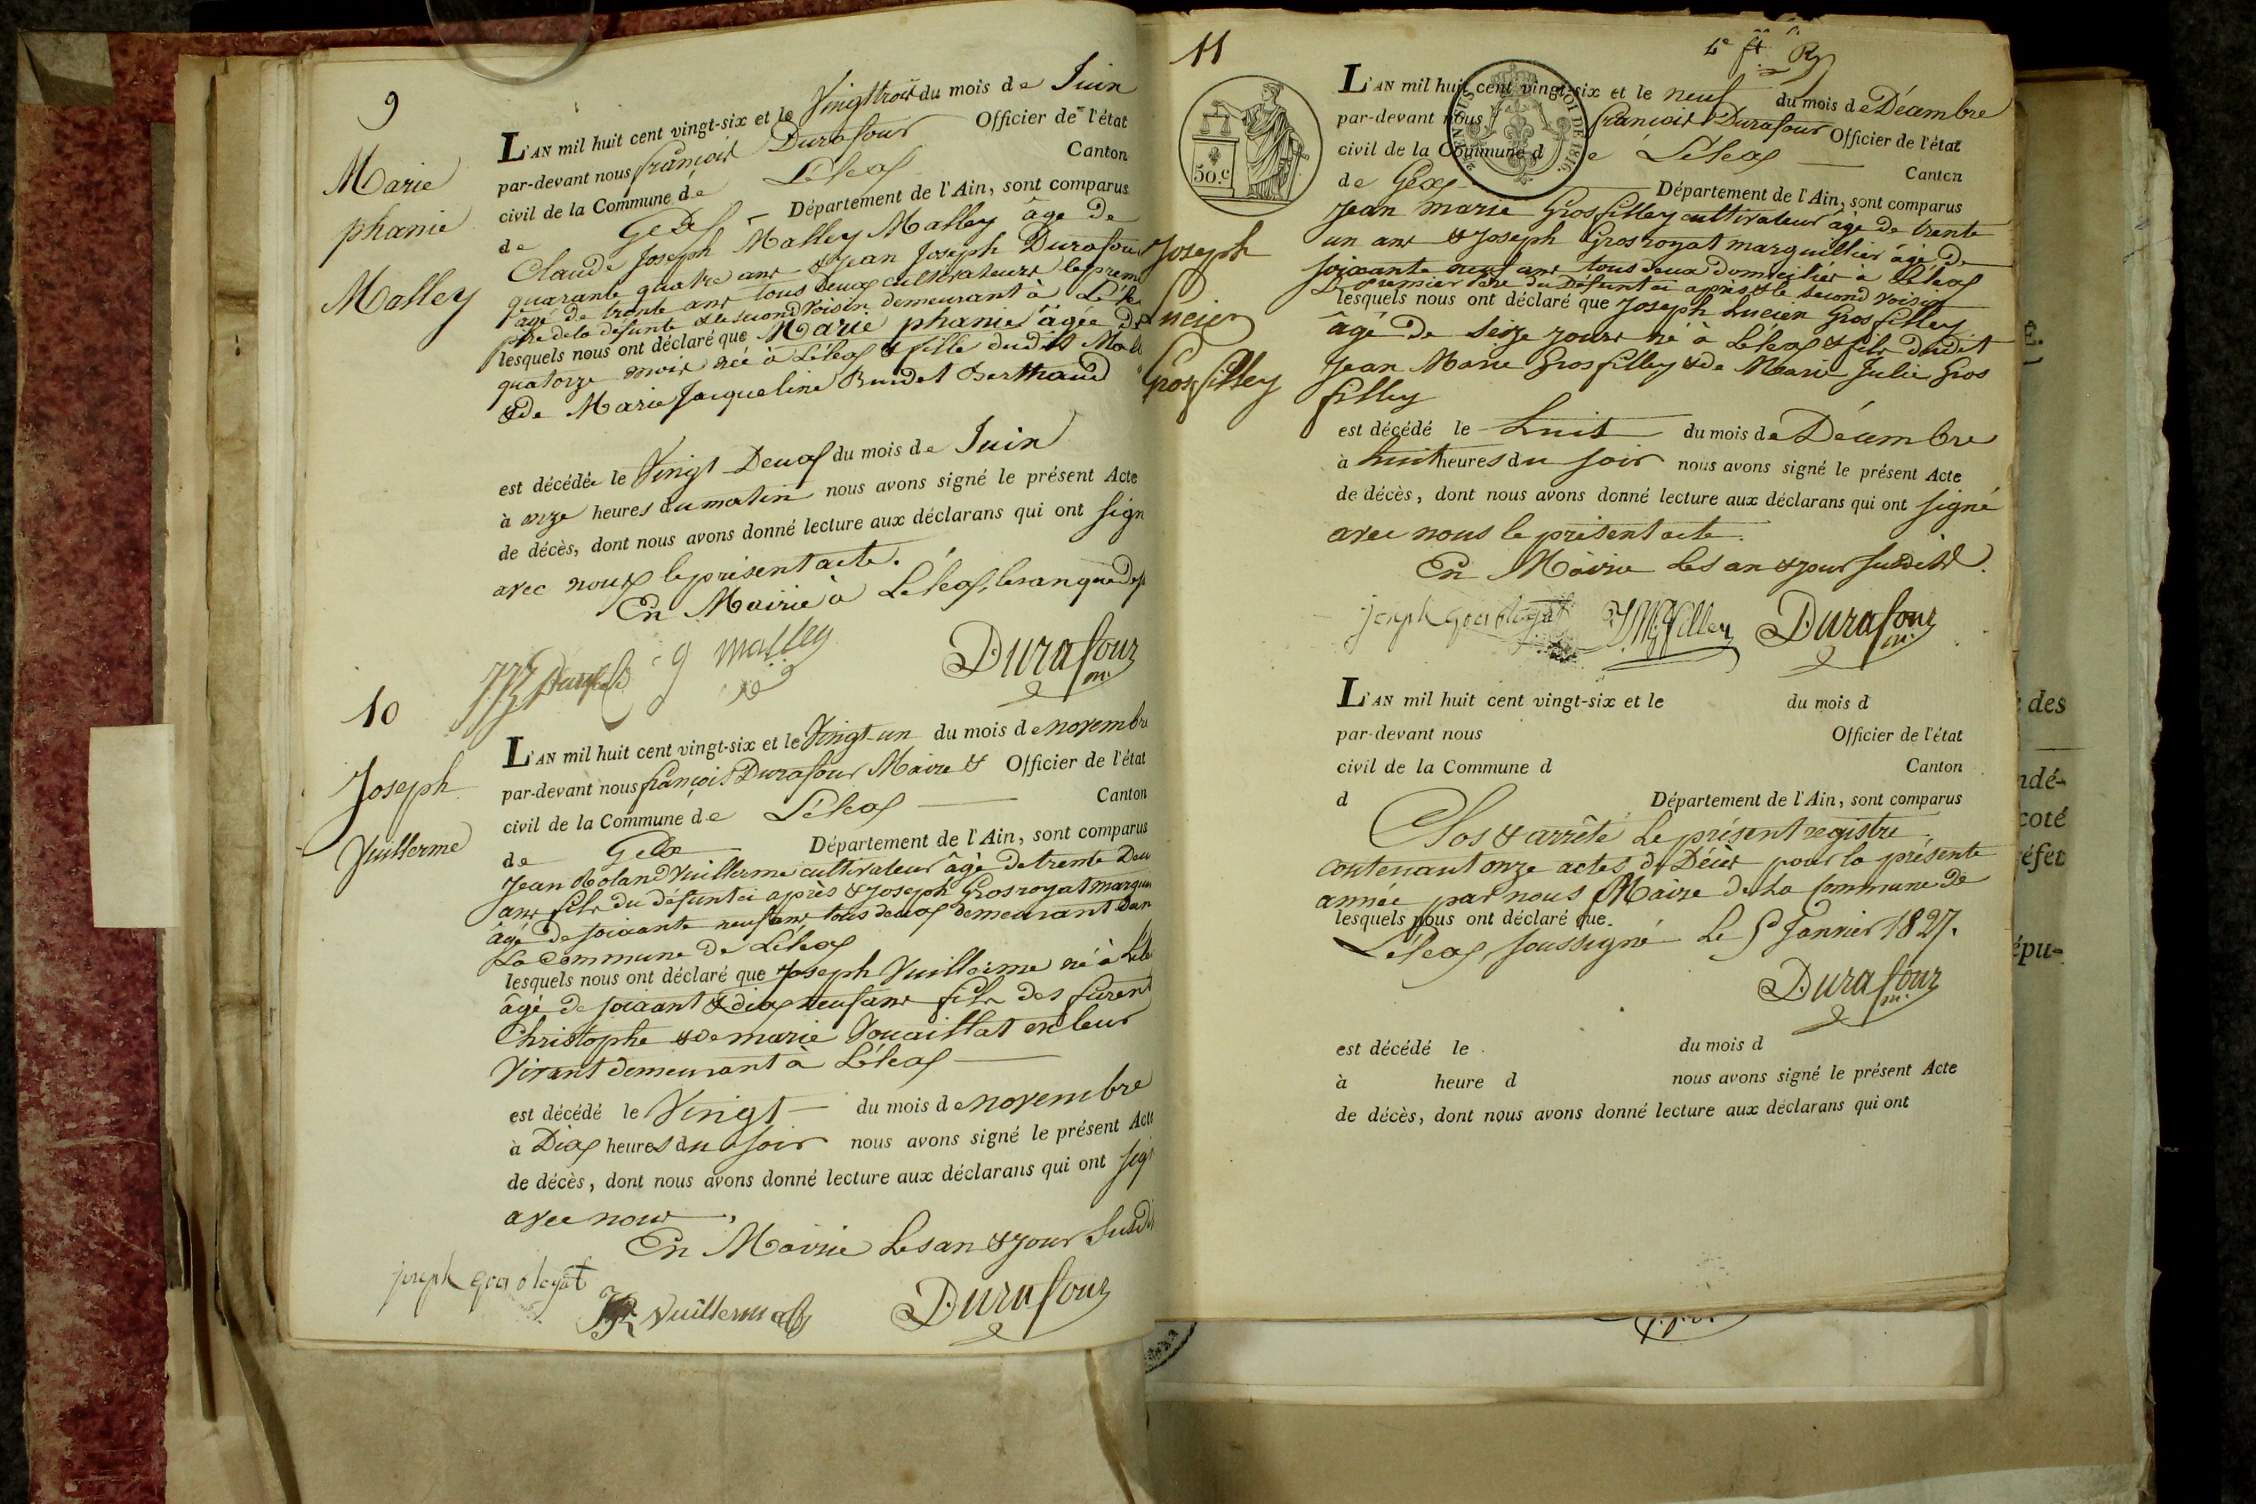 9
Marie
phanie
Malley
L'AN mil huit cent vingt-six et le Vingttrois du mois de Juin
par-devant nous françois Durafour Officier de l'état
civil de la Commune de Léleax Canton
de Gex Département de l'Ain, sont comparus
Claude Joseph Malley Malley âgé de
quarante quatre ans & Jean Joseph Durafour
âgé de trente ans tous deux cultivateurs le prem
père de la défunte & le second voisin demeurant à Léle
lesquels nous ont déclaré que Marie phanie âgée de
quatorze mois née à Léleax & fille dudit Mal
& de Marie Jacqueline Burdet Berthaud
est décédée le Vingt Deux du mois de Juin
à onze heures du matin nous avons signé le présent Acte
de décès, dont nous avons donné lecture aux déclarans qui ont sign
avec nous le présent acte.
En Mairie à Léleax, les an que dess
malley Durafour
m.
10
Joseph
Vuillerme
L'AN mil huit cent vingt-six et le Vingt-un du mois de novembre
par-devant nous françois Durafour Maire & Officier de l'état
civil de la Commune de Léleax Canton
de Gex Département de l'Ain, sont comparus
Jean Roland Vuillerme cultivateur âgé de trente Deu
ans fils du défunt ci après & Joseph Grosroyat margui
âgé de soixante neuf ans tous deux demeurant Dan
La Commune de Léleax
lesquels nous ont déclaré que Joseph Vuillerme né à Léle
âgé de soixant & dix neuf ans fils des furent
Christophe & de marie Vouaillat en leur
Vivant demeurant à Léleax
est décédé le Vingt du mois de novembre
à Dix heures du soir nous avons signé le présent Acte
de décès, dont nous avons donné lecture aux déclarans qui ont sign
avec nous.
En Mairie Les an & jour Susdit
joseph gros royat
Vuillerme Durafour
11
50.c
ROI DE 1816.
Joseph
Lucien
Grosfilley
L'AN mil huit cent vingt-six et le neuf du mois de Décembre
par-devant nous françois Durafour Officier de l'état
civil de la Commune de Léleax Canton
de Gex Département de l'Ain, sont comparus
Jean Marie Grosfilley cultivateur âgé de trente
un ans & Joseph Grosroyat marguillier âgé de
soixante neuf ans tous deux domiciliés à Léleax
Le premier père du défunt ci après & le second voisin
lesquels nous ont déclaré que Joseph Lucien Grosfilley
âgé de seize jours né à Léleax & fils dudit
Jean Marie Grosfilley & de Marie Julie Gros
filley
est décédé le huit du mois de Décembre
à huit heures du soir nous avons signé le présent Acte
de décès, dont nous avons donné lecture aux déclarans qui ont signé
avec nous le présent acte.
En Mairie Les an & jour susdits.
joseph gros royat J M G filley Durafour
m.
L'AN mil huit cent vingt-six et le du mois d
par-devant nous Officier de l'état
civil de la Commune d Canton
d Département de l'Ain, sont comparus
Clos & arrêté Le présent registre
contenant onze actes de Décès pour la présente
année par nous Maire de La Commune de
lesquels nous ont déclaré que
Léleax soussigné Le 1er Janvier 1827.
Durafour
m.
est décédé le du mois d
à heure d nous avons signé le présent Acte
de décès, dont nous avons donné lecture aux déclarans qui ont
E.
des
ndé-
coté
réfet
épu-